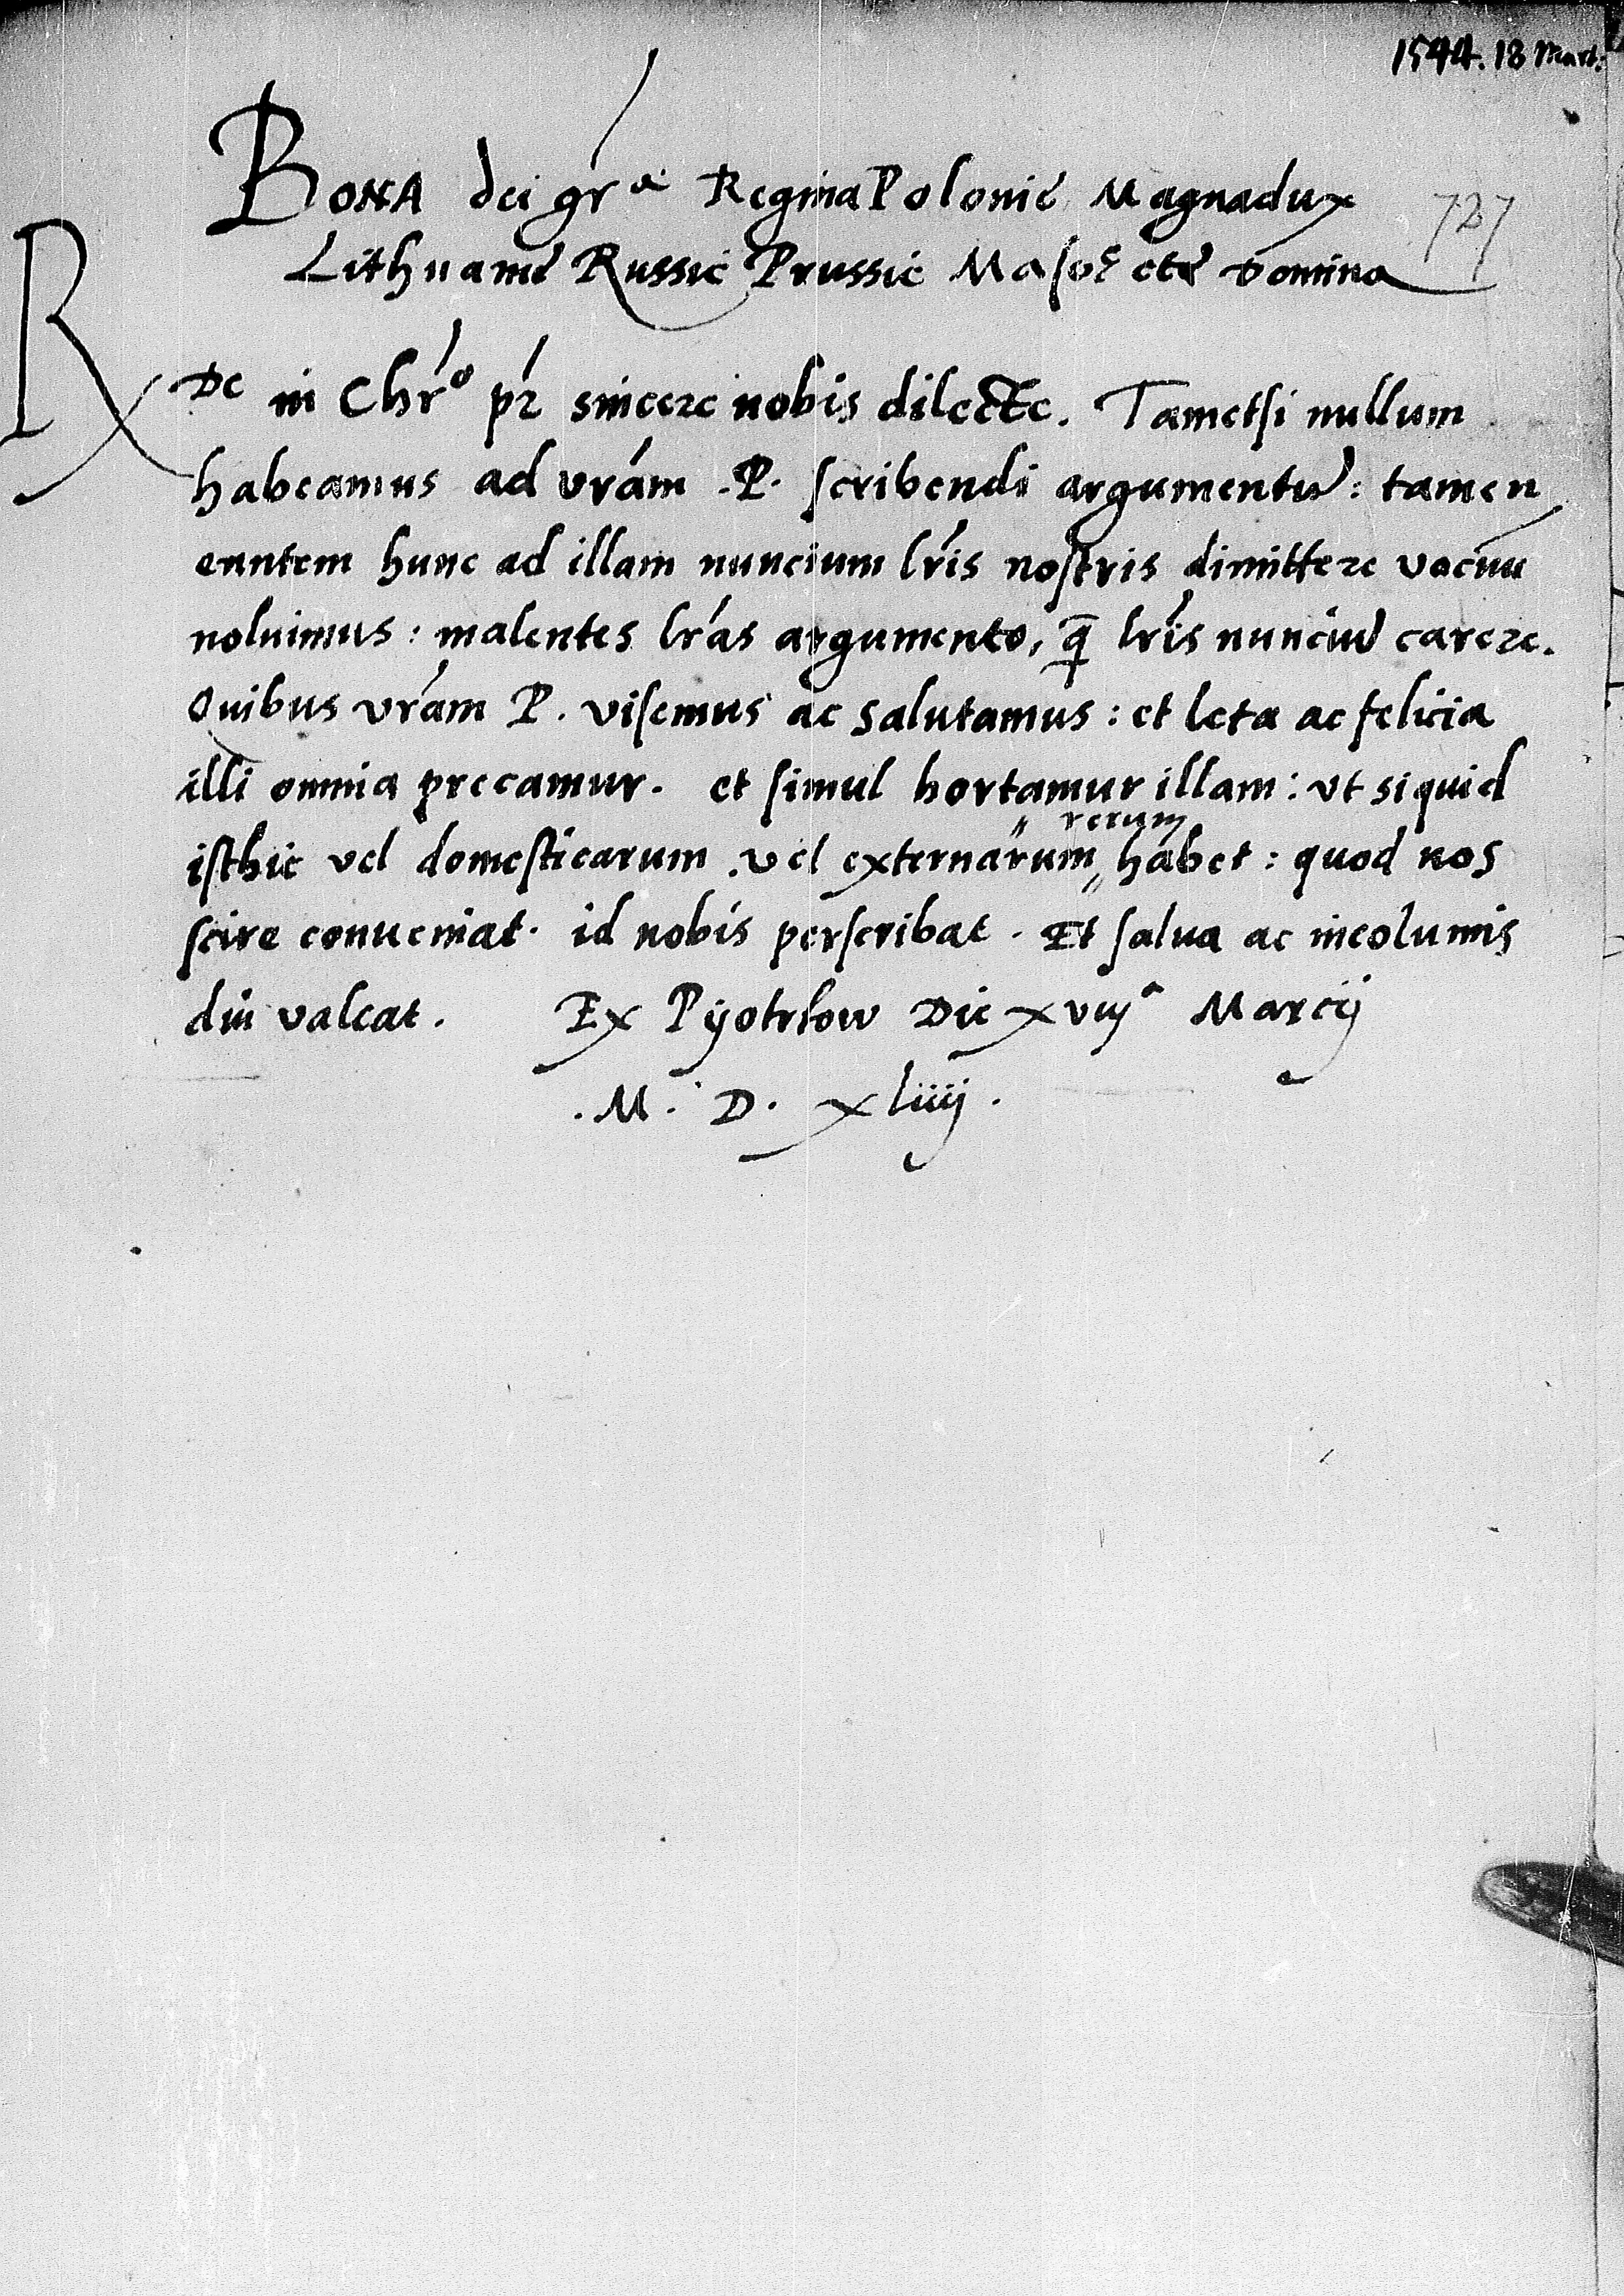 1544. 18 Mart:
BONA dei gr̃a Regina Polonie Magnadux
727
Lithuanie Russie Prussie Masoꝫ etc̃ Domina
RDe in Chr̃o pr̃ sincere nobis dilecte. Tametsi nullum
habeamus ad vrãm .P. scribendi argumentũ: tamen
euntem hunc ad illam nuncium lr̃is nostris dimittere vacuũ
noluimus: malentes lr̃as argumento, q̃ lr̃is nunciũ carere.
Quibus vrãm P. visemus ac salutamus: et leta ac felicia
illi omnia precamur. et simul hortamur illam: vt siquid
rerum
isthic vel domesticarum vel externarum habet: quod nos
scire conueniat. id nobis perscribat. Et salua ac incolumis
diu valeat. Ex Pyotrkow Die xviijª Marcij
.M. D. xliiij.